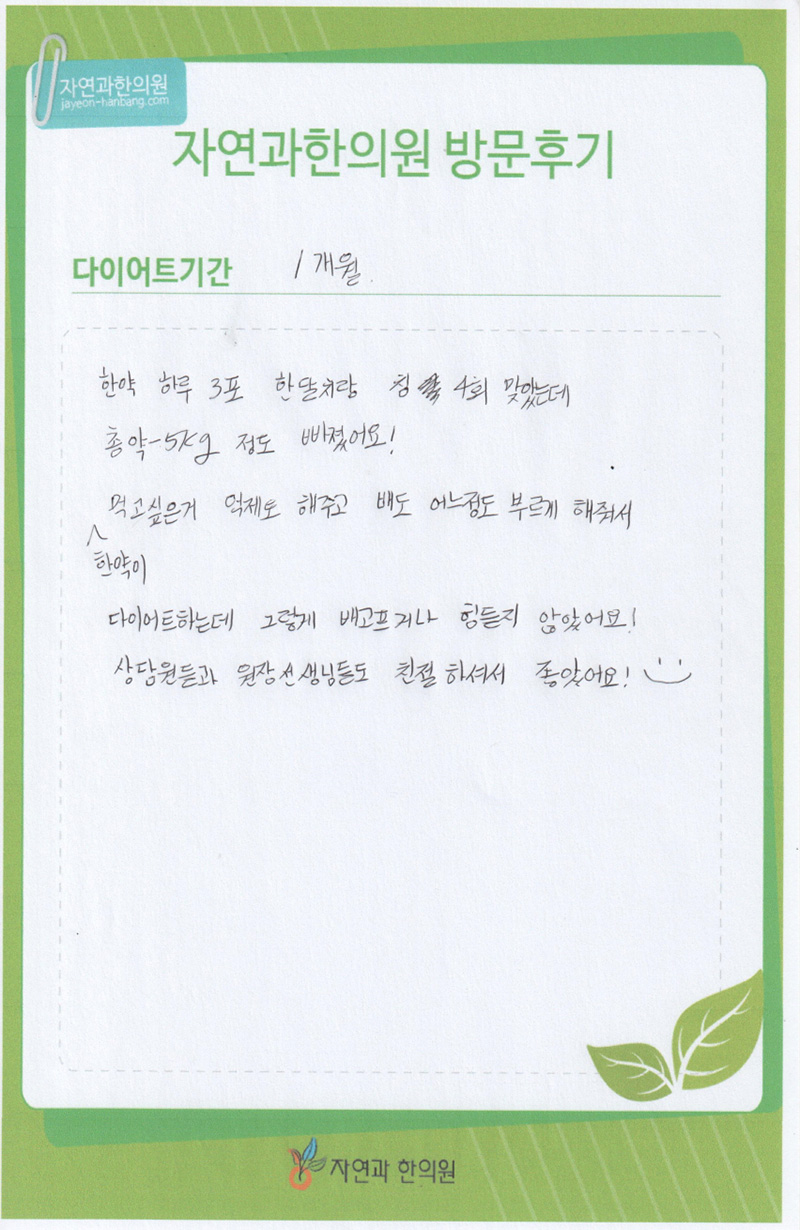 자연과한의원
jayeon-hanbang.com
자연과한의원 방문후기
다이어트기간 1개월.
한약 하루 3포 한달치랑 침 4회 맞았는데
총 약-5kg 정도 빠졌어요!
먹고싶은거 억제도 해주고 배도 어느정도 부르게 해줘서
한약이
다이어트하는데 그렇게 배고프거나 힘들지 않았어요!
상담원들과 원장선생님들도 친절하셔서 좋았어요!
자연과 한의원